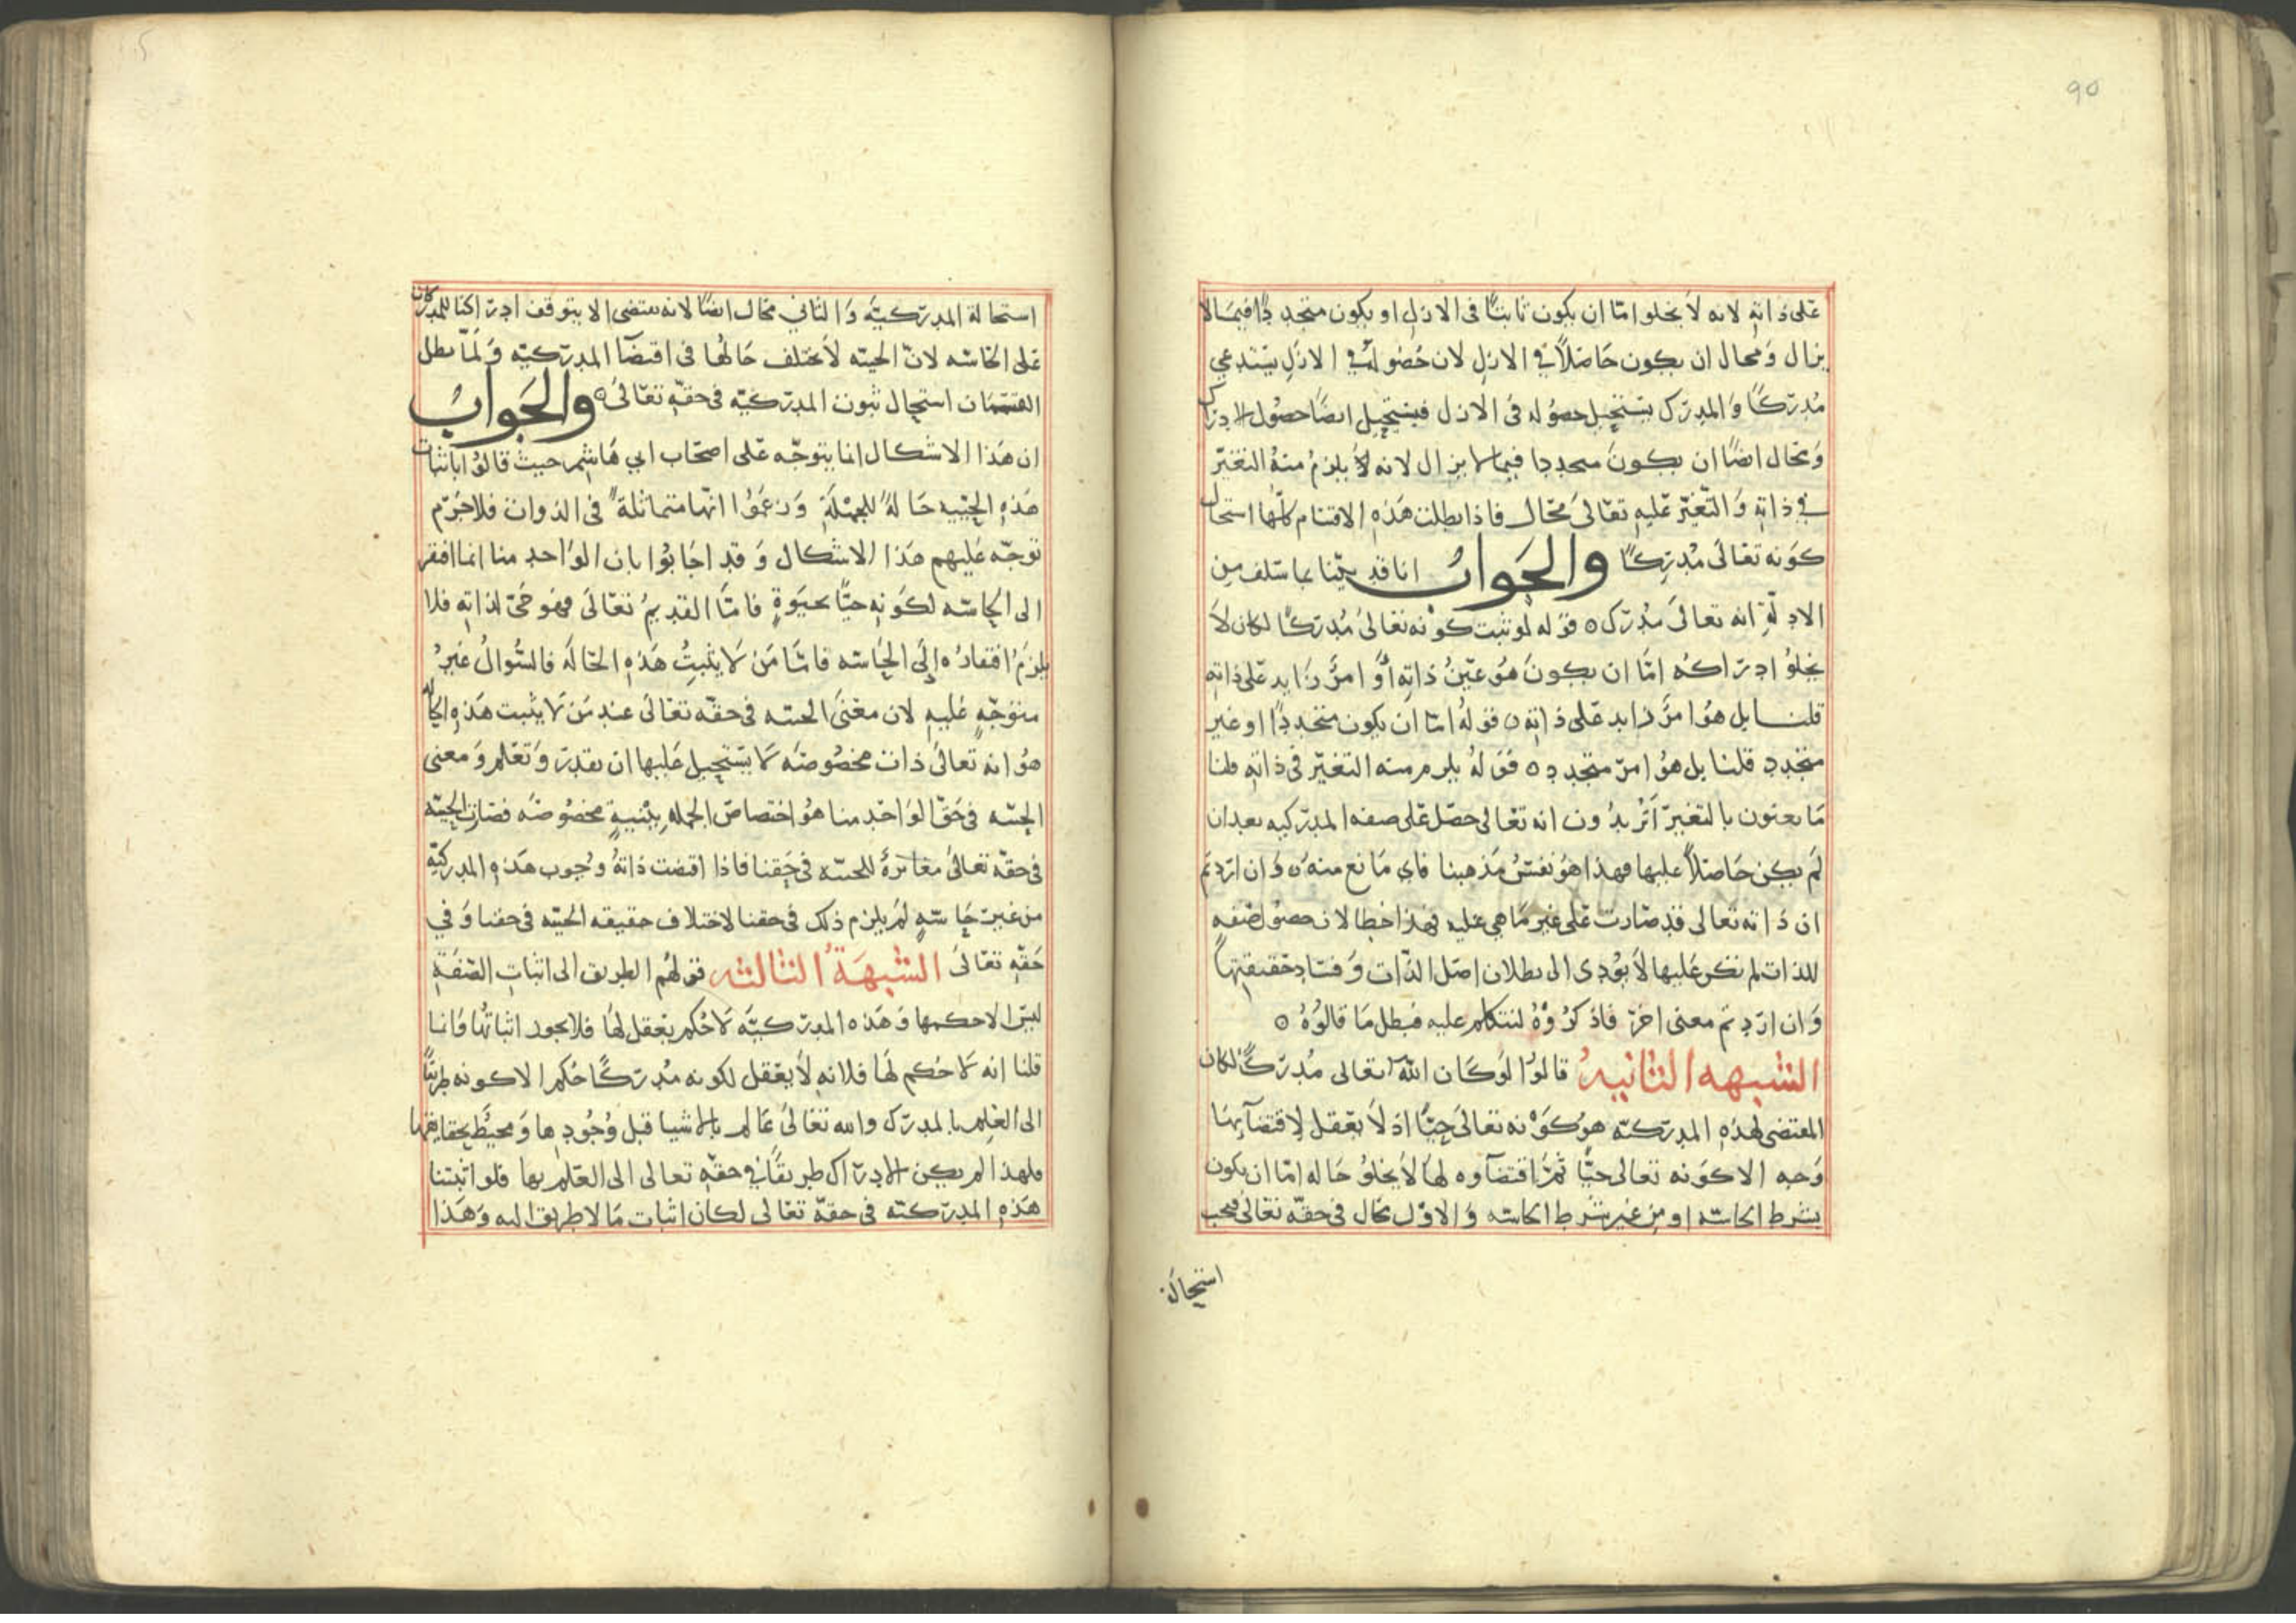 90
على ذاته لانه لا يخلوا امّا ان يكون ثابتًا فى الازل او يكون متجددًا فيما لا
يزال وَمحال ان يكون حَاصلاً فى الازل لان حُصُوله فى الازل يستدعي
مُدرَكًا وَالمدرَك يستحيل حصُوله فى الازل فيستحيل ايضًا حصُول الادراك
وَمحال ايضًا ان يكونَ متجددا فيما لا يزال لانه يلزمُ منهُ التغيّر
في ذاتهِ وَالتّغيّر عَليهِ تعَالىَ محَال فاذا بطلت هَذهِ الاقسَام كلّهَا استحال
كوَنه تعَالىَ مُدرِكًا والجَوابُ انا قد بيّنا بما سَلف مِن
الادلّةِ انه تعالىَ مُدرك ٥ قوَله لو ثبت كونه تعَالىَ مُدركًا لكان لاَ
يخلوُ ادرَاكه امّا ان يكونَ هوَ عيّنُ ذاتهِ اوَ امرٌ زَايد عَلى ذاتهِ
قلنا بل هوُ امرٌ زايد عَلى ذاته ٥ قوَلهُ امّا ان يكون متجددًا او غير
متجدد قلنا بل هوُ امرّ متجدد ٥ قوَلهُ يلزم منه التغيّر فى ذاتهِ قلنا
مَا يعنون بالتغيرّ اَتُريدُون انه تعَالى حصَل عَلى صفه المدرَكيه بعد ان
لمَ يكن حَاصلاً عليها فهذا هوُ نفسُ مَذهبنا فاي مَانع منه ٥ وَان ارَدتمَ
ان ذَاته تعَالى قد صَارت عَلى غير مَا هي عَليه فهَذا خطا لان حصوُل صفه
للذات لم تكن عَليها لاَ يؤدى الى بطلان اصَل الذّات وَفسَاد حَقيقتِهَا
وَان ارَدتم معنى اخرَ فاذكرُوُهُ لنتكلم عليه فبَطل مَا قالوُهُ ٥
الشبهه الثانيهُ قالوُا لوَ كَان اللهُ تعَالى مُدرَكًا لكان
المقتضى لهذهِ المدرَكيّه هوَ كوَنه تعَالىَ حيًّا اذ لاَ يعَقل لاِقتضَآيهَا
وَجه الا كوَنه تعَالى حيًّا ثمَّ اقتضَآوه لهَا لاَ يخلوُ حَاله امّا ان يكون
بشرط الحاسّه او مِن غير شرط الحاسّه وَالاوّل محَال فى حقّه تعَالىَ فيجب
استحالة
استحَالة المدرَكيّه وَالثاني محَال ايضًا لانه يقتضى الا يتوقف ادرَاكنا للمدركات
عَلى الحَاسّه لانّ الحيّه لاَ تختلف حَالُهَا فى اقتضَآ المدرَكيّه وَلمَّا بطل
القسمَان استحِال ثبوت المدرَكيّه فى حقّهِ تعَالىَ ٥ والجَوابُ
ان هَذا الاشكال انما يتوجّه عَلى اصحَاب ابي هَاشِم حيثَ قالوُا باثبات
هَذهِ الحِيّيه حَالةً للجمْلَةِ وَزعَموُا انّها متماثلةً فى الذوات فلا جَرَم
توَجّه عَليهم هَذا الاشكال وَقد اجَابوُا بان الوَاحد منا انما افتقر
الى الحاسّه لكوَنهِ حيّاً بحيَوةٍ فامَّا القديمُ تعَالىَ فهوَ حَىّ لذاتهِ فلا
يلزمُ افتقارُه اِلىَ الحَاسّه فامّا مَنْ لاَ يثبتُ هَذهِ الحَالهَ فالسُّوالُ غيرُ
متوَجّهٍ عَليهِ لان معَنىَ الحيّه فى حقّه تعَالىَ عند مَن لاَ يثبت هَذهِ الحاله
هوُ انه تعَالىَ ذات مخصُوصَه لاَ يسَتحِيل عَليها ان يقدرَ وَيَعَلم وَمعنى
الحِيّه فىِ حَقّ الوَاحَد منا هوُ اختصاصَ الجملهِ بِبْنيةٍ مخصُوصَه فصَارت الحِيّه
فى حقّه تعَالىَ مغايرَةً للحيّه فى حَقِنا فاذا اقتضت ذاتهُ وُجوب هَذهِ المدركيّه
من غيرَ حَاسّهٍ لمَ يلزم ذلك فى حقنا لاختلاف حقيقه الحيّه فى حقنا وَفي
حَقّهِ تعَالىَ الشبهَةُ الثالثه قوَلهُم الطريق الى اثباتِ الصّفَةِ
ليسَ الا حكمها وَهَذه المدرَكيّه لاَ حُكم يعَقل لهَا فلا يجوز اثباتُهَا وَانما
قلنا انه لاَ حُكم لهَا فلانهِ لاَ يعَقل لكونه مُدرَكًا حُكم الا كونه طريقًا
الى العَلم بالمدرَك والله تعَالىَ عَالم بالاشيا قبل وُجُودهَا وَمحيطً بحقايقهَا
فلهذا لم يكن الادرَاك طريقًا فى حقّهِ تعَالى الى العَلم بها فلو اثبتنا
هَذهِ المدرَكيّه فى حقهّ تعَالى لكان اثبات مَا لا طريق اليه وَهَذا